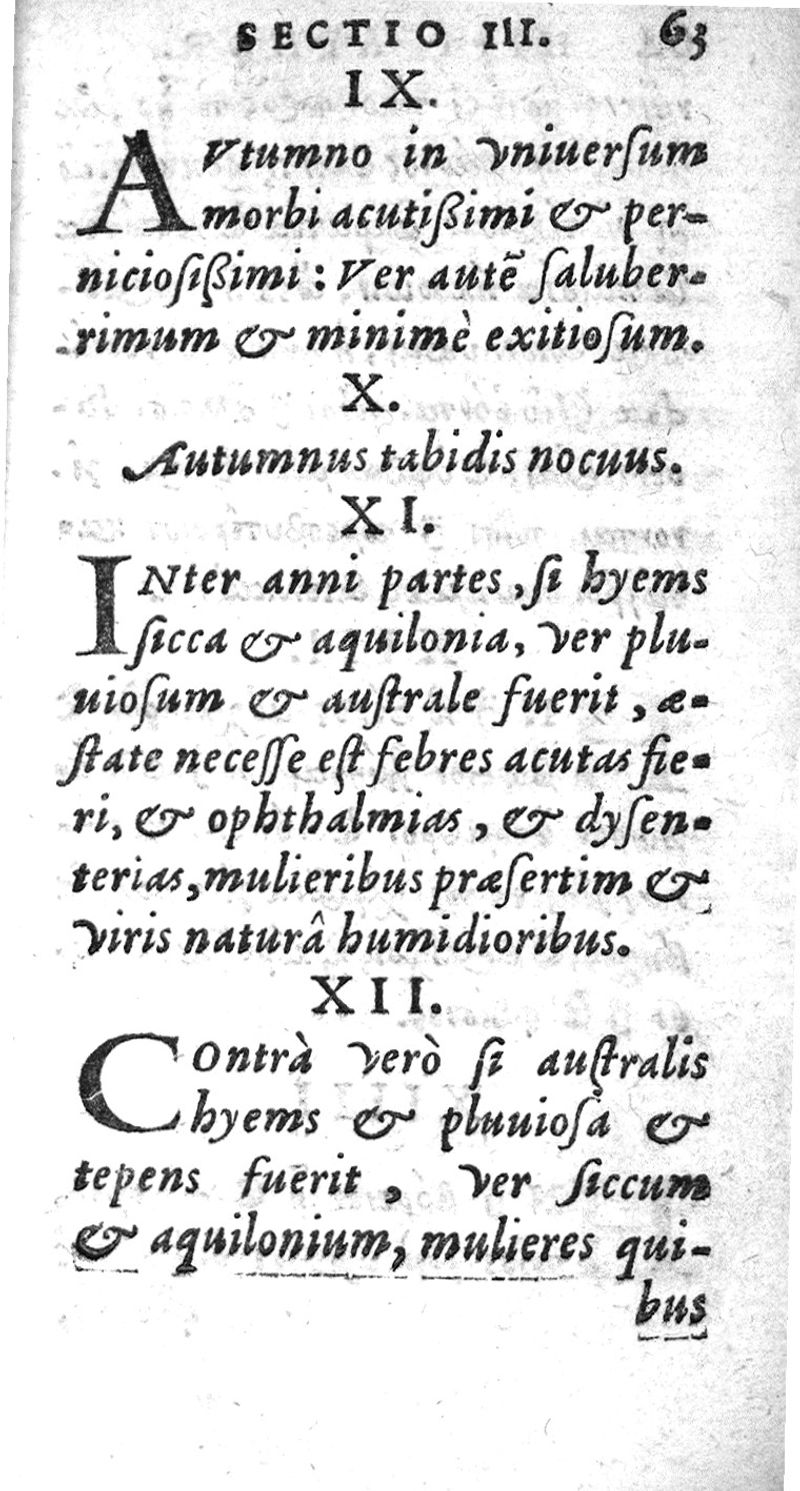 SECTIO III. 63
IX.
AVtumno in vniuerſum
morbi acutißimi & per-
nicioſißimi : Ver autẽ ſaluber-
rimum & minimè exitioſum.
X.
Autumnus tabidis nocuus.
XI.
INter anni partes, ſi hyems
ſicca & aquilonia, ver plu-
uioſum & auſtrale fuerit, æ-
ſtate neceſſe eſt febres acutas fie-
ri, & ophthalmias, & dyſen-
terias, mulieribus præſertim &
viris naturâ humidioribus.
XII.
COntrà verò ſi auſtralis
hyems & pluuioſa &
tepens fuerit, ver ſiccum
& aquilonium, mulieres qui-
bus